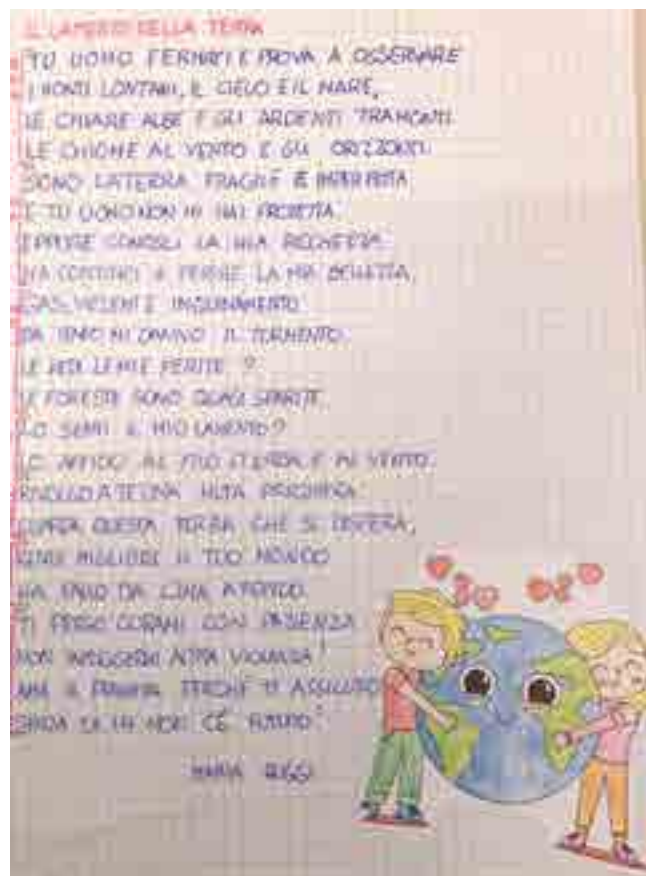 IL LAMENTO DELLA TERRA
TU UOMO FERMATI E PROVA A OSSERVARE
I MONTI LONTANI, IL CIELO E IL MARE,
LE CHIARE ALBE E GLI ARDENTI TRAMONTI
LE CHIOME AL VENTO E GLI ORIZZONTI.
SONO LA TERRA FRAGILE E IMPERFETTA
E TU UOMO NON MI HAI PROTETTA.
EPPURE CONOSCI LA MIA RICCHEZZA
MA CONTINUI A FERIRE LA MIA BELLEZZA.
GAS, VELENI E INQUINAMENTO
DA TEMPO MI DANNO IL TORMENTO.
LE VEDI LE MIE FERITE ?
LE FORESTE SONO QUASI SPARITE.
LO SENTI IL MIO LAMENTO?
LO AFFIDO AL E AL VENTO.
RIVOLGO A TE UNA MUTA PREGHIERA
GUARDA QUESTA TERRA CHE SI DISPERA,
RENDI MIGLIORE IL TUO MONDO
MA FALLO DA CIMA A FONDO.
TI PREGO CURAMI CON PAZIENZA
NON INFLIGGERMI ALTRA VIOLENZA!
AMA IL PIANETA PERCHÉ TI ASSICURO
SENZA DI ME NON C'É FUTURO!
MARIA RUGGI